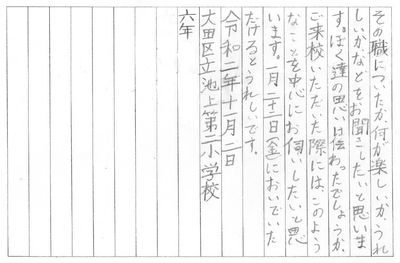 その職についたか、何が楽しいか、うれ
しいかなどをお聞きしたいと思いま
す。ぼく達の思いは伝わったでしょうか。
ご来校いただいた際には、このよう
なことを中心にお伺いしたいと思
います。一月二十二日(金)においでいた
だけるとうれしいです。
令和二年十一月二日
大田区立池上第二小学校
六年